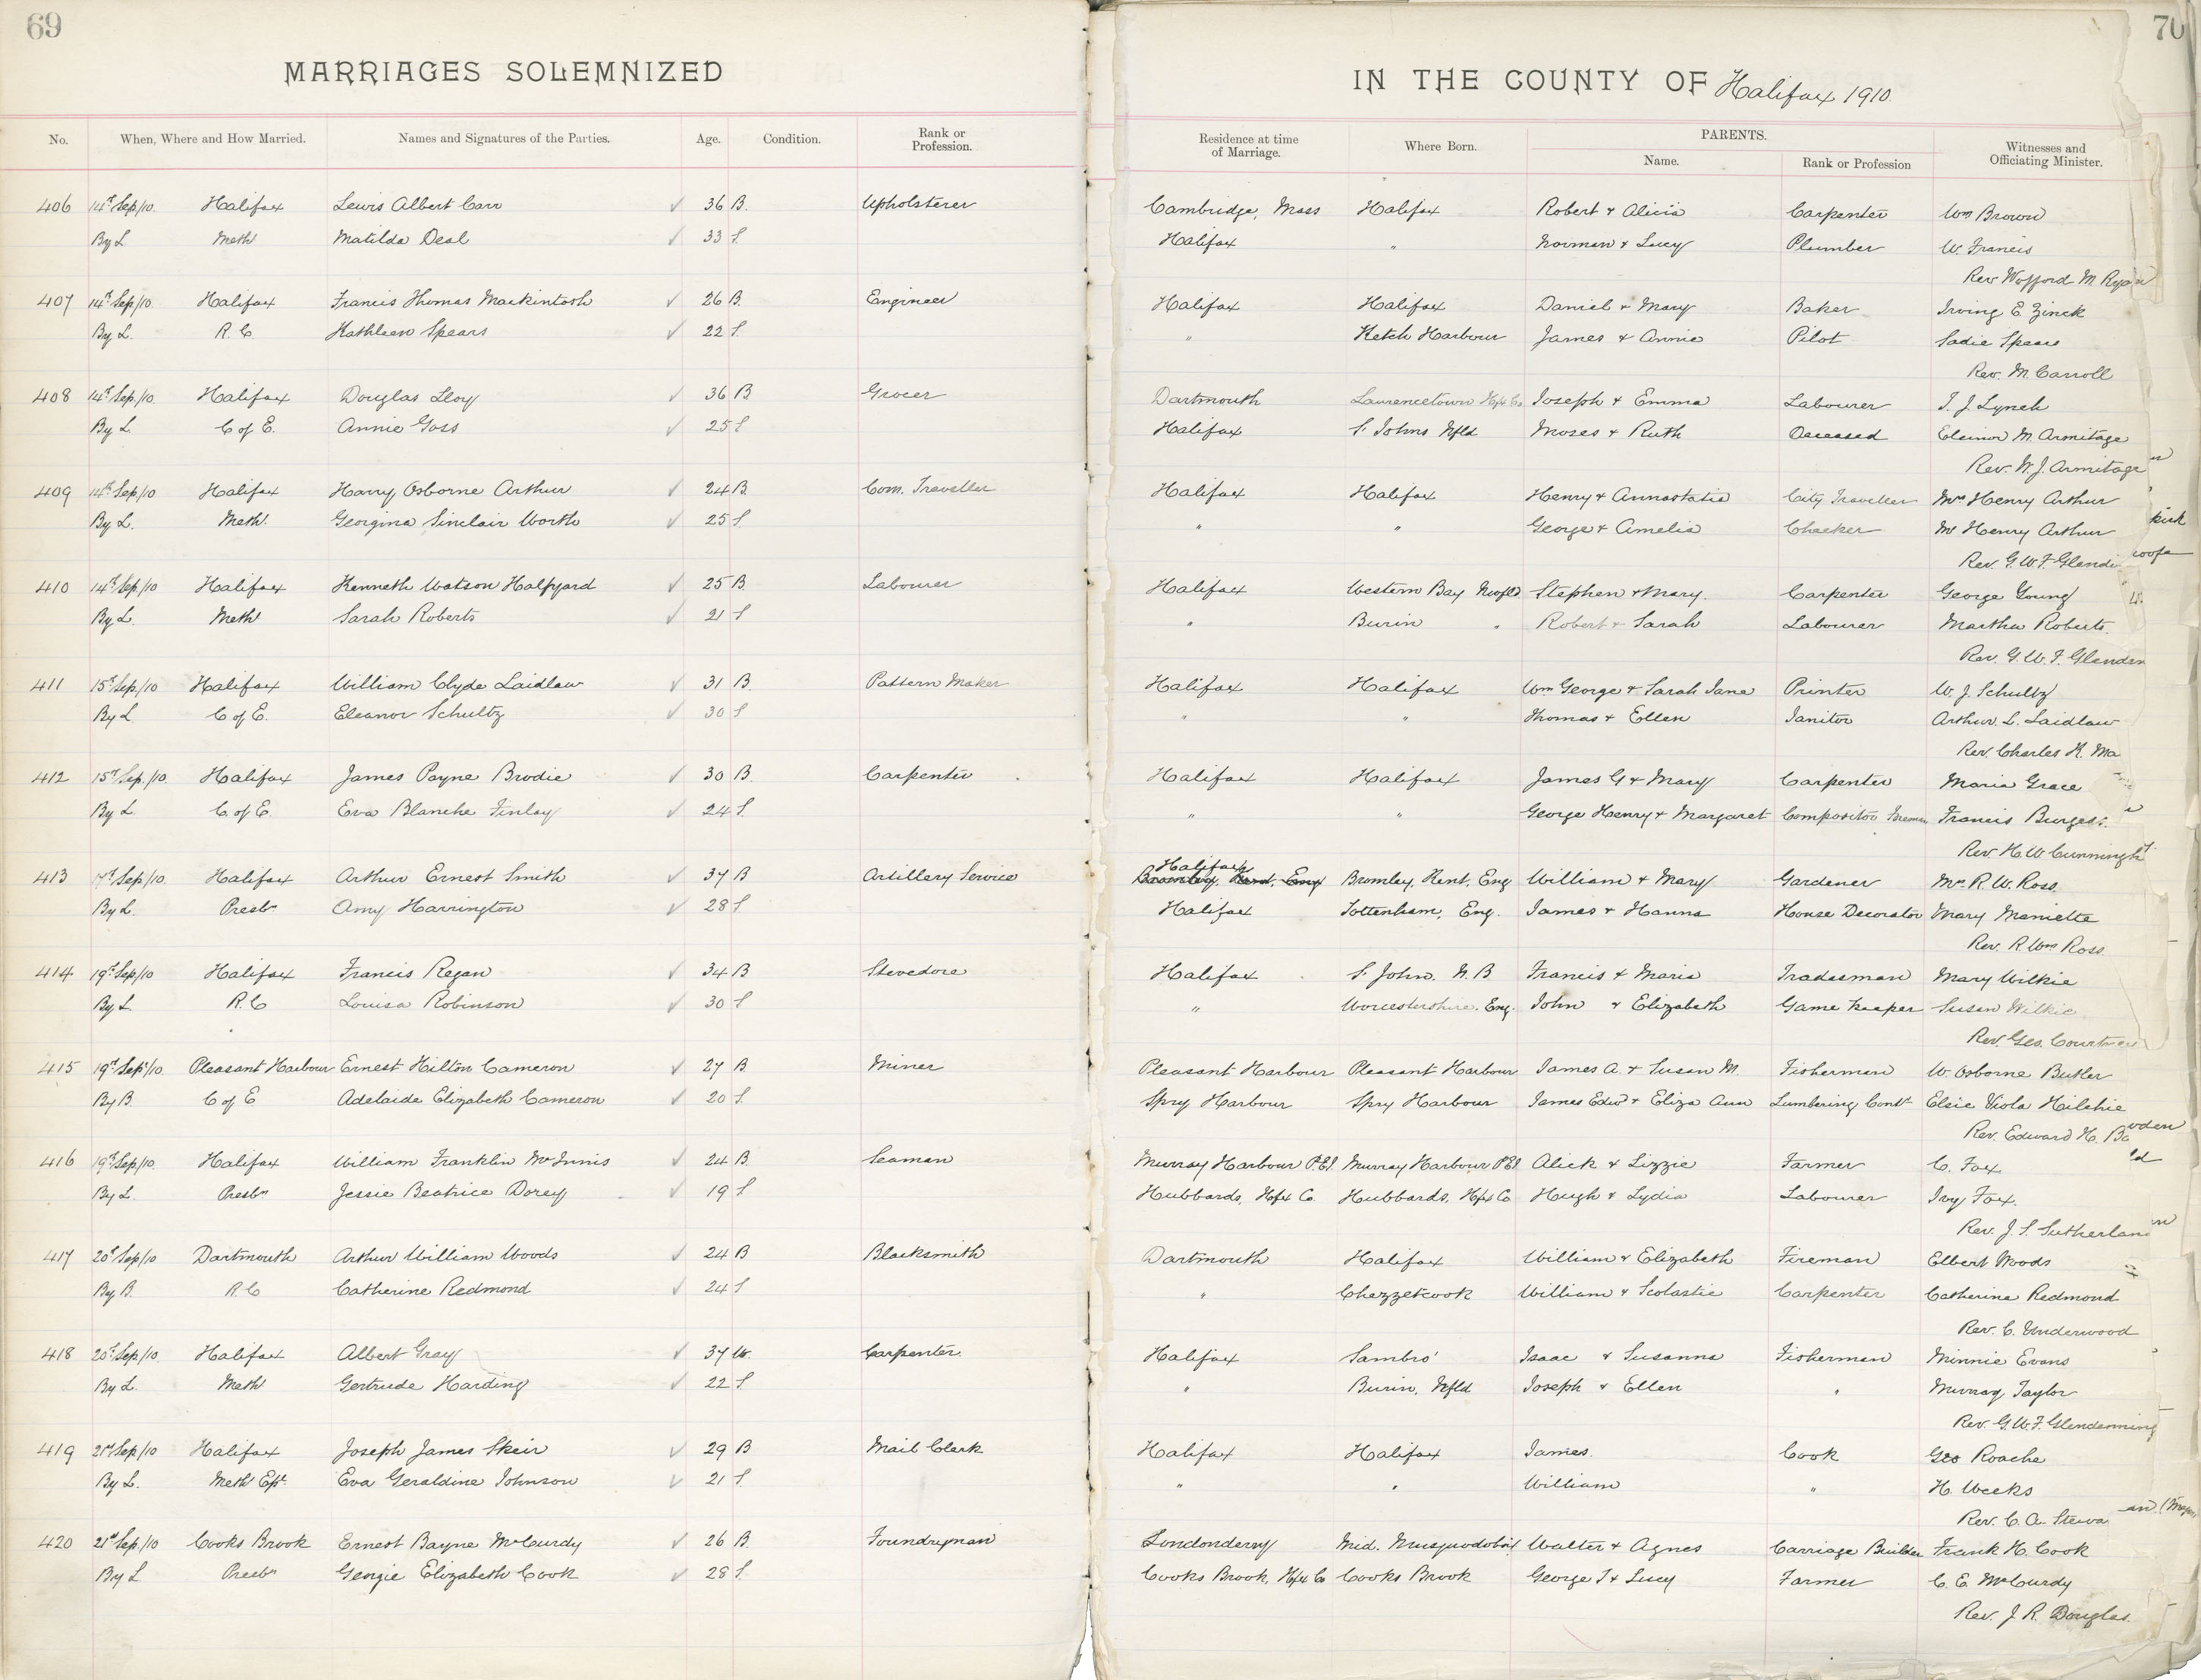 69
70
MARRIAGES SOLEMNIZED
IN THE COUNTY OF Halifax 1910.
No. When, Where and How Married. Names and Signatures of the Parties. Age. Condition. Rank or Profession. Residence at time of Marriage. Where Born. PARENTS. Name. Rank or Profession Witnesses and Officiating Minister.
406 14th Sep/10. Halifax Lewis Albert Carr ✓ 36 B. Upholsterer Cambridge, Mass Halifax Robert & Alicia Carpenter Wm Brown
By L Meth Matilda Deal ✓ 33 S. Halifax " Norman & Lucy Plumber W. Francis
Rev Wofford M. Ryan
407 14th Sep/10. Halifax Francis Thomas Mackintosh ✓ 26 B. Engineer Halifax Halifax Daniel & Mary Baker Irving E. Zinck
By L. R. C. Kathleen Spears ✓ 22 S. " Ketch Harbour James & Annie Pilot Sadie Spears
Rev. M. Carroll
408 14th Sep/10. Halifax Douglas Lloy ✓ 36 B Grocer Dartmouth Laurencetown Hfx Co. Joseph & Emma Labourer T. J. Lynch
By L. C of E. Annie Goss ✓ 25 S Halifax St Johns Nfld Moses & Ruth Deceased Eleinor M. Armitage
Rev. W. J. Armitage
409 14th Sep/10 Halifax Harry Osborne Arthur ✓ 24 B. Com. Traveller Halifax Halifax Henry & Annastatia City Traveller Mrs Henry Arthur
By L. Meth. Georgina Sinclair Worth ✓ 25 S. " " George & Amelia Checker Mr Henry Arthur
Rev. G. W. F. Glendi
410 14th Sep/10 Halifax Kenneth Watson Halfyard ✓ 25 B. Labourer Halifax Western Bay Newfld Stephen & Mary. Carpenter George Young
By L. Meth Sarah Roberts ✓ 21 S " Burin " Robert & Sarah Labourer Martha Roberts.
Rev. G. W. F. Glenden
411 15th Sep/10 Halifax William Clyde Laidlaw ✓ 31 B. Pattern Maker Halifax Halifax Wm George & Sarah Jane Printer W. J. Schultz
By L C of E. Eleanor Schultz ✓ 30 S " " Thomas & Ellen Janitor Arthur. L. Laidlaw
Rev. Charles H. Ma
412 15th Sep./10. Halifax James Payne Brodie ✓ 30 B. Carpenter Halifax Halifax James G & Mary Carpenter Maria Grace
By L. C. of E. Eva Blanche Finlay ✓ 24 S. " " George Henry & Margaret Compositor Francis Burgess.
Rev. H. W. Cunningh
413 17th Sep/10. Halifax Arthur Ernest Smith ✓ 37 B Artillery Service Halifax Bromley, Kent, Eng Bromley, Kent, Eng William & Mary Gardener Mrs R. W. Ross.
By L. Presbn Amy Harrington ✓ 28 S Halifax Tottenham, Eng. James & Hanna House Decorator Mary Maniette
Rev. R. Wm Ross.
414 19th Sep/10 Halifax Francis Regan ✓ 34 B Stevedore Halifax St John, N. B Francis & Maria Tradesman Mary Wilkie
By L. R. C Louisa Robinson ✓ 30 S " Worcestershire. Eng. John & Elizabeth Game Keeper Susan Wilkie
Rev. Geo. Courtney
415 19th Sep/10. Pleasant Harbour Ernest Hilton Cameron ✓ 27 B Miner Pleasant Harbour Pleasant Harbour James A. & Susan M. Fisherman W. Osborne Butler
By B. C of E Adelaide Elizabeth Cameron ✓ 20 S. Spry Harbour Spry Harbour James Edwd & Eliza Ann Lumbering Contr Elsie Viola Hilchie
Rev. Edward H. Ba
416 19th Sep/10. Halifax William Franklin McInnis ✓ 24 B. Seaman Murray Harbour P.E.I. Murray Harbour P.E.I. Alick & Lizzie Farmer C. Fox
By L. Presbn Jessie Beatrice Dorey ✓ 19 S. Hubbards, Hfx Co. Hubbards, Hfx Co Hugh & Lydia Labourer Ivy Fox.
Rev. J. S. Sutherland
417 20th Sep/10 Dartmouth Arthur William Woods ✓ 24 B Blacksmith Dartmouth Halifax William & Elizabeth Fireman Elbert Woods
By B. R C Catherine Redmond ✓ 24 S " Chezzetcook William & Scolastic Carpenter Catherine Redmond
Rev. C. Underwood
418 20th Sep/10. Halifax Albert Gray ✓ 37 W. Carpenter. Halifax Sambro Isaac & Susanna Fisherman Minnie Evans
By L. Meth Gertrude Harding ✓ 22 S. " Burin, Nfld Joseph & Ellen " Murray Taylor
Rev. G. W. F. Glendenning
419 21st Sep/10 Halifax Joseph James Skeir ✓ 29 B Mail Clerk Halifax Halifax James. Cook Geo Roache
By L. Meth Epl. Eva Geraldine Johnson ✓ 21 S. " " William " H. Weeks
Rev. C. A. Stewa
420 21st Sep/10 Cooks Brook Ernest Bayne McCurdy ✓ 26 B. Foundryman Londonderry Mid. Musquodoboit Walter & Agnes Carriage Builder Frank H. Cook
By L Presbn Georgie Elizabeth Cook ✓ 28 S. Cooks Brook, Hfx Co Cooks Brook George I & Lucy Farmer C. E. McCurdy
Rev. J. R. Douglas.